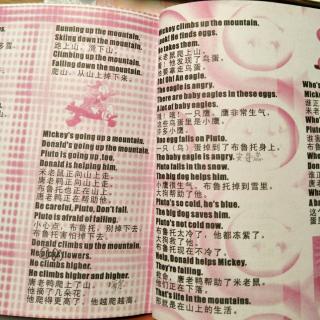 Running up the mountain.
Skiing down the mountain.
跑上山，滑下山。
Climbing up the mountain.
Falling down the mountain.
爬山，从山上掉下来。
Mickey's going up a mountain.
Donald's going up the mountain.
Pluto is going up, too.
Donald is helping him.
米老鼠正向山上走。
唐老鸭正向山上走。
布鲁托也正在山上。
唐老鸭正在帮助他。
Be careful, Pluto, Don't fall.
Pluto is afraid of falling.
小心点，布鲁托，别掉下去，
布鲁托害怕掉下去。
Donald climbs up the mountain.
flowers.
He climbs higher.
He climbs higher and higher.
唐老鸭爬上了山。
他摘了几朵花。
他爬得更高了，他越爬越高。
Mickey climbs up the mountain.
Wow! He finds eggs.
He takes them.
米老鼠爬上山。
哦！他发现了乌蛋。
他要拿走乌蛋。
Oh! Oh! An eagle.
The eagle is angry.
There are baby eagles in these eggs.
A lot of baby eagles.
哦！哦！一只鹰。鹰非常生气，
这些乌蛋里是小鹰。
许多小鹰。
One egg falls on Pluto.
一只（乌）蛋掉到了布鲁托身上。
The baby eagle is angry.
Pluto falls in the snow.
The big dog helps him.
小鹰很生气，布鲁托掉到雪里，
大狗帮助了他。
Pluto's so cold, he's blue.
The big dog saves him.
Pluto's not cold now.
布鲁托太冷了，他都冻紫了。
大狗救了他。
布鲁托现在不冷了。
Help, Donald helps Mickey.
They're falling.
救命，唐老鸭帮助了米老鼠。
他们正在下落。
That's life in the mountains.
那就是在山上的生活。